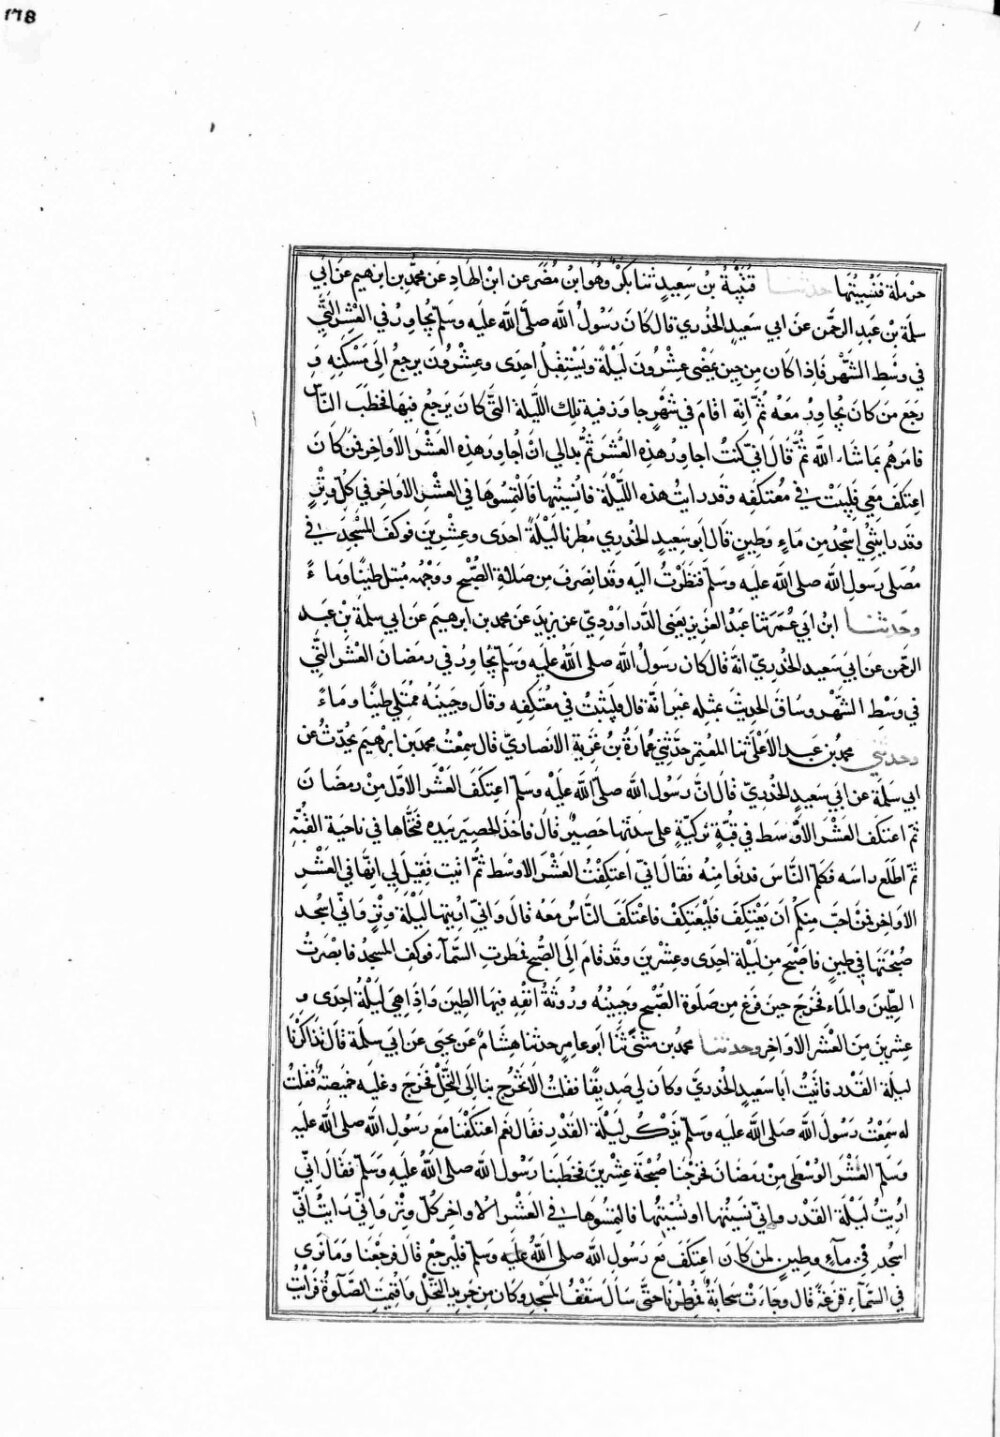 ١٧٨
حرملة فنسيتها حدثنا قُتَيْبَةُ بْن سَعِيدٍ ثنا بَكْرٌ وهُوَ ابْنُ مُضَر عن ابْنِ الهَادِ عن محمَّد بن ابرٰهيم عن ابي
سلمَة بْن عَبد الرحمٰن عن ابي سَعيدٍ الخُدري قال كَانَ رَسُولُ اللهِ صلّى اللهُ عليه وسَلم يُجَاوِرُ في العَشْرِ التَّي
في وسَطِ الشَّهْر فاِذا كَان مِن حِين يَمْضى عِشْرُونَ لَيْلَةً ويَسْتقبلُ احدَى وعشْرُون يرجعُ الى مَسْكَنِهِ وَ
رَجَع مَن كانَ يُجاورُ مَعَهُ ثمَّ انّه اقامَ في شَهْرٍ جاوَرَ فيه تِلك اللّيلة التي كانَ يَرجعُ فيهَا فخطَبَ النَّاسَ
فامَرهُم بماشَاءَ اللهُ ثمَّ قَالَ انّي كنتُ اجاورُ هذِه العَشْرَ ثمُّ بَدَا لي انْ اُجاورَ هذِه العشرَ الاَوَاخِرَ فمَن كَانَ
اعتكَفَ مَعِي فَليَبِتْ في مُعْتكفِه وقد رايتُ هذه اللّيْلةَ فاُنسِيتُها فَالْتمِسُوهَا في العَشْرِ الاَوَاخِرِ في كلّ وِتْرٍ
وقد رايتُني اسْجُدُ مِن مَاءٍ وطِينٍ قال ابو سَعِيدٍ الخُدري مُطِرنا لَيْلَةً احدَى وعِشْرِينَ فوكَفَ المسْجدُ في
مُصَلى رَسولِ اللهِ صلى الله عليه وسَلم فنَظَرْتُ اليهِ وقدِ انصَرفَ مِن صَلاةِ الصُّبْحِ ووَجْهُه مُبتلٌ طينًا ومَاءً
وحَدثنا ابنُ ابي عُمَرَ ثنا عبدُ العَزِيز يعني الدَّرَاوَرْدِيّ عن يزِيدَ عَن محمد بن ابرٰهيم عَن ابي سلمَة بْن عَبد
الرّحمٰن عَن ابي سَعيد الخُدْرِيّ انّهُ قالَ كان رَسُولُ اللهِ صلى اللهُ عليه وسلم يُجَاورُ في رمضانَ العَشْرَ التَّي
في وَسَطِ الشَّهْرِ وسَاقَ الحديثَ بمثله غيرَ انّهُ قال فليَثبُتْ في مُعْتكِفِهِ وقالَ وجَبِينُهُ مُمْتَلي طينًا ومَاءً
وحدثني محمدُ بن عَبد الاَعْلَى ثنا المعْتمِرُ حدّثني عُمَارَةُ بْنُ غَزِيّة الانصَاريّ قالَ سمِعْتُ محمدَ بنَ ابرٰهِيمَ يُحدّثُ عن
ابي سَلمَة عن ابي سَعيدٍ الخُدْريّ قالَ انّ رَسُولَ اللهِ صلى اللهُ عليهِ وسَلم اعتكَفَ العَشْرَ الاَوّلَ مِنْ رمضانَ
ثمّ اعتكفَ العَشْرَ الاَوْسَطَ في قُبّةٍ تركيّةٍ على سدّتها حَصِيرٌ قالَ فاَخَذَ الحصِيرَ بيَدِه فنحَّاهَا في ناحِية القُبّةِ
ثمّ اطْلَعَ راسَه فكلّمَ النَّاسَ فدنَوا مِنْه فقالَ انّي اعتكفْتُ العشْرَ الاوْسَط ثمَّ اتيتُ فقِيلَ لي انّهَا في العَشْرِ
الاَواخِرِ فمَن احَبّ مِنكمْ اَن يَعْتكِفَ فليَعتكفْ فاعتكَفَ النَّاسُ مَعه قالَ وَانّي اُريتُها لَيْلَةَ وِتْرٍ وانّي اسْجُد
صُبْحَتَهَا في طينٍ فاَصْبَحَ مِن لَيْلة احدَى وعشْرينَ وقد قامَ الَى الصُّبْحِ فمطرتِ السَّمآءُ فوكَفَ المسجدُ فابْصَرتُ
الطّينَ والماءَ فخَرَجَ حِينَ فرَغَ مِن صَلوةِ الصُّبْحِ وجَبِينُهُ ورُوثَةُ انفِهِ فيها الطينُ وَاِذَا هِيَ لَيْلَةُ احدَى و
عشرينَ مِنَ العَشْرِ الاوَاخِرِ وحدثنا محمدُ بن مثنّى ثنا ابو عامرٍ حدثنا هِشامٌ عن يحيى عَن ابي سلمَة قالَ تذاكرْنَا
ليلةَ القَدْرِ فاتيتُ ابا سَعيدٍ الخُدْري وكان لي صديقًا فقلتُ الاَ تخرُجُ بنَا الى النّخْلِ فخرَجَ وعَليهِ خميصةٌ فقلتُ
له سَمِعْتُ رَسُولَ اللهِ صَلى اللهُ عَليهِ وسَلم يَذْكُرُ لَيْلَةَ القَدْرِ فقال نعَم اعتكَفْنَا مَع رسُولِ اللهِ صلى الله عليه
وسَلم العَشْرَ الوُسْطى مِنْ رمَضانَ فخرجْنا صُبْحَةَ عِشْرينَ فخطَبنَا رَسُولُ اللهِ صلى اللهُ عليهِ وَسَلم فقَالَ انّي
اُريتُ لَيْلَةَ القَدْرِ وانّي نَسيتُها او نُسّيتُها فالتمِسُوهَا في العَشْرِ الاَواخِرِ كلَّ وِتْرٍ وَانّي رَايتُ انّي
اسجُد في مآءٍ وطِينٍ فمَن كَانَ اعتكَفَ مَع رَسُولِ اللهِ صلى اللهُ عليه وسلم فليرجعْ قالَ فرجَعْنَا ومَا نَرَى
في السّمآءِ قزعَةً قال وجَاءَتْ سَحَابَةٌ فمُطِرْنا حتّى سَالَ سَقْفُ المَسْجدِ وكَانَ مِن جَريدِ النّخْل واُقيمَتِ الصَّلوةُ فرَايتُ